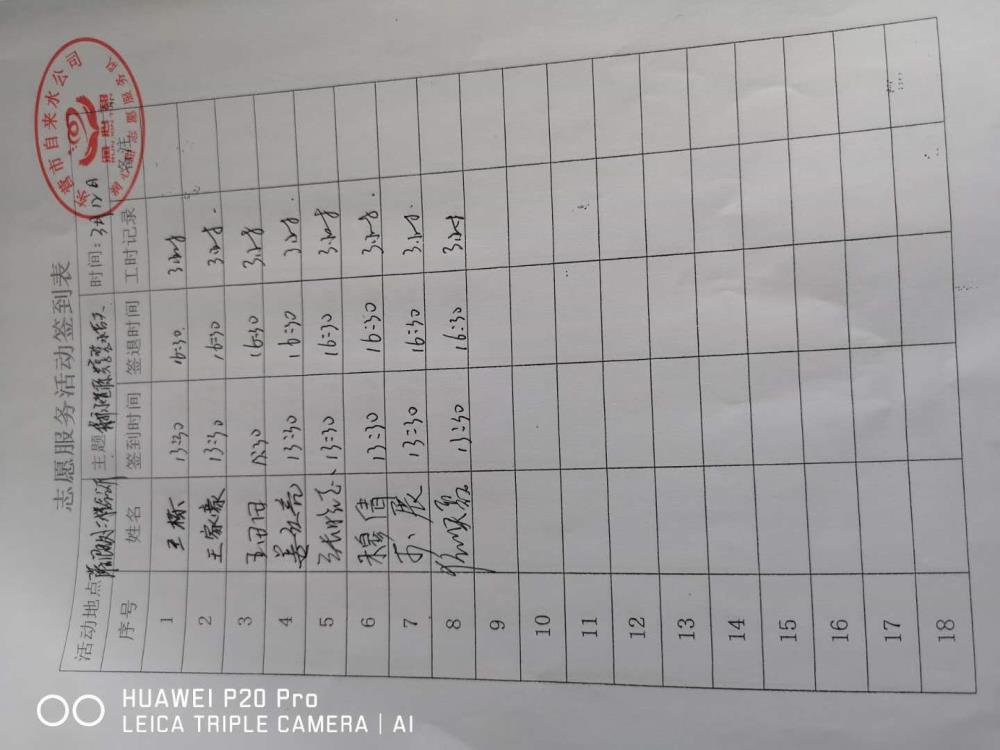 志愿服务活动签到表
活动地点 主题 时间：3月12日
序号 姓名 签到时间 签退时间 工时记录 备注
1 王栋 13:30 16:30 3小时
2 王家豪 13:30 16:30 3小时.
3 王丹丹 13:30 16:30 3小时
4 姜红亮 13:30 16:30 3小时.
5 13:30 16:30 3小时
6 穆倩 13:30 16:30 3小时.
7 展 13:30 16:30 3小时.
8 13:30 16:30 3小时
9
10
11
12
13
14
15
16
17
18
市自来水公司
志愿服务队
HUAWEI P20 Pro
LEICA TRIPLE CAMERA | AI